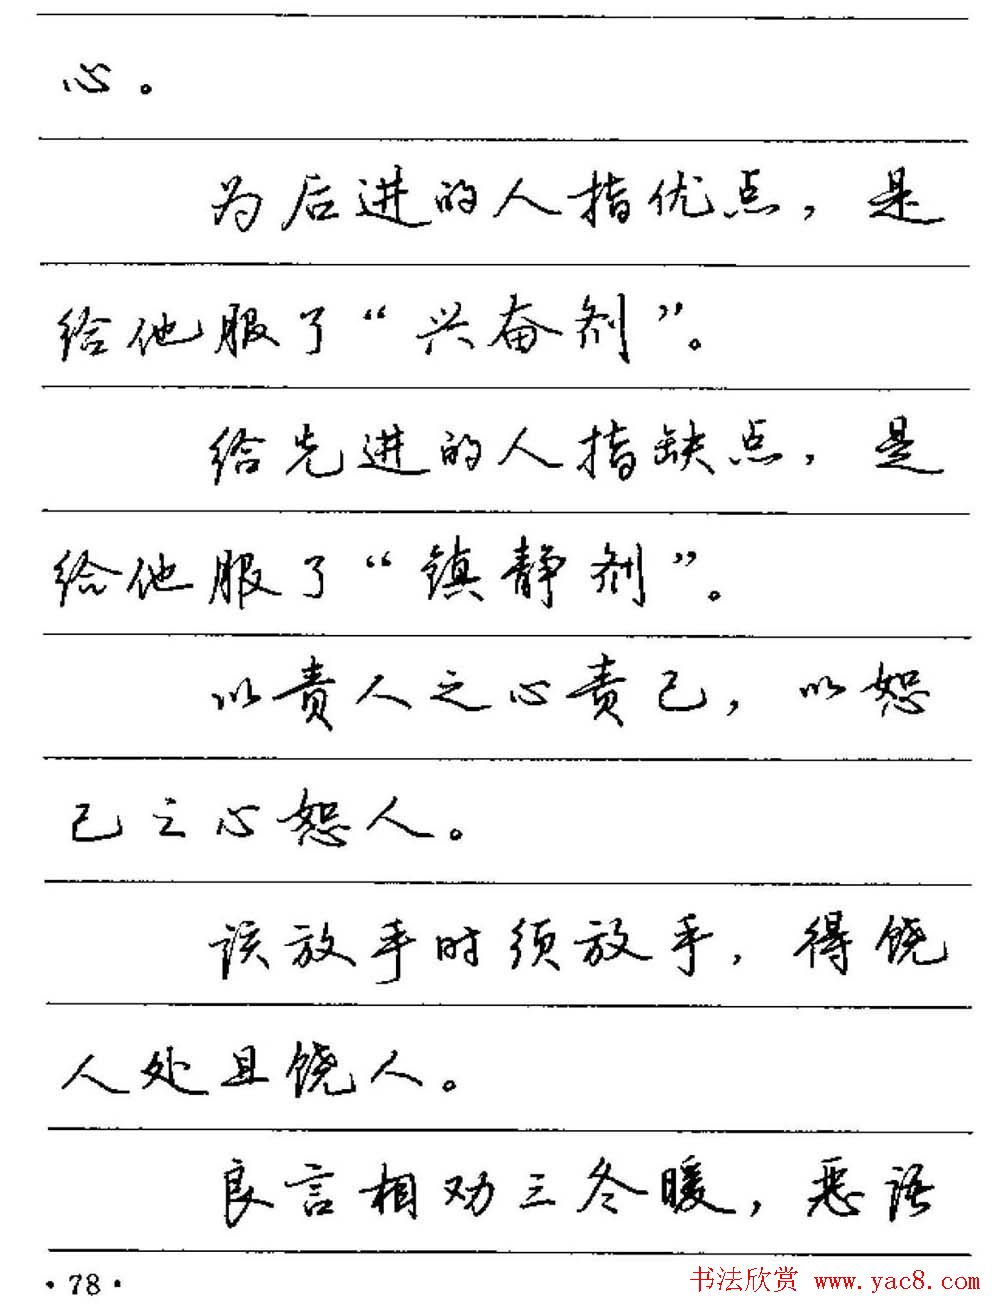 心。
为后进的人指优点，是
给他服了“兴奋剂”。
给先进的人指缺点，是
给他服了“镇静剂”。
以责人之心责己，以恕
己之心恕人。
该放手时须放手，得饶
人处且饶人。
良言相劝三冬暖，恶语
·78·
书法欣赏 www.yac8.com